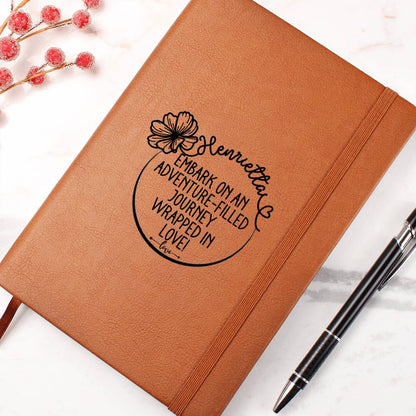 Henrietta
EMBARK ON AN
ADVENTURE-FILLED
JOURNEY
WRAPPED IN
LOVE!
love